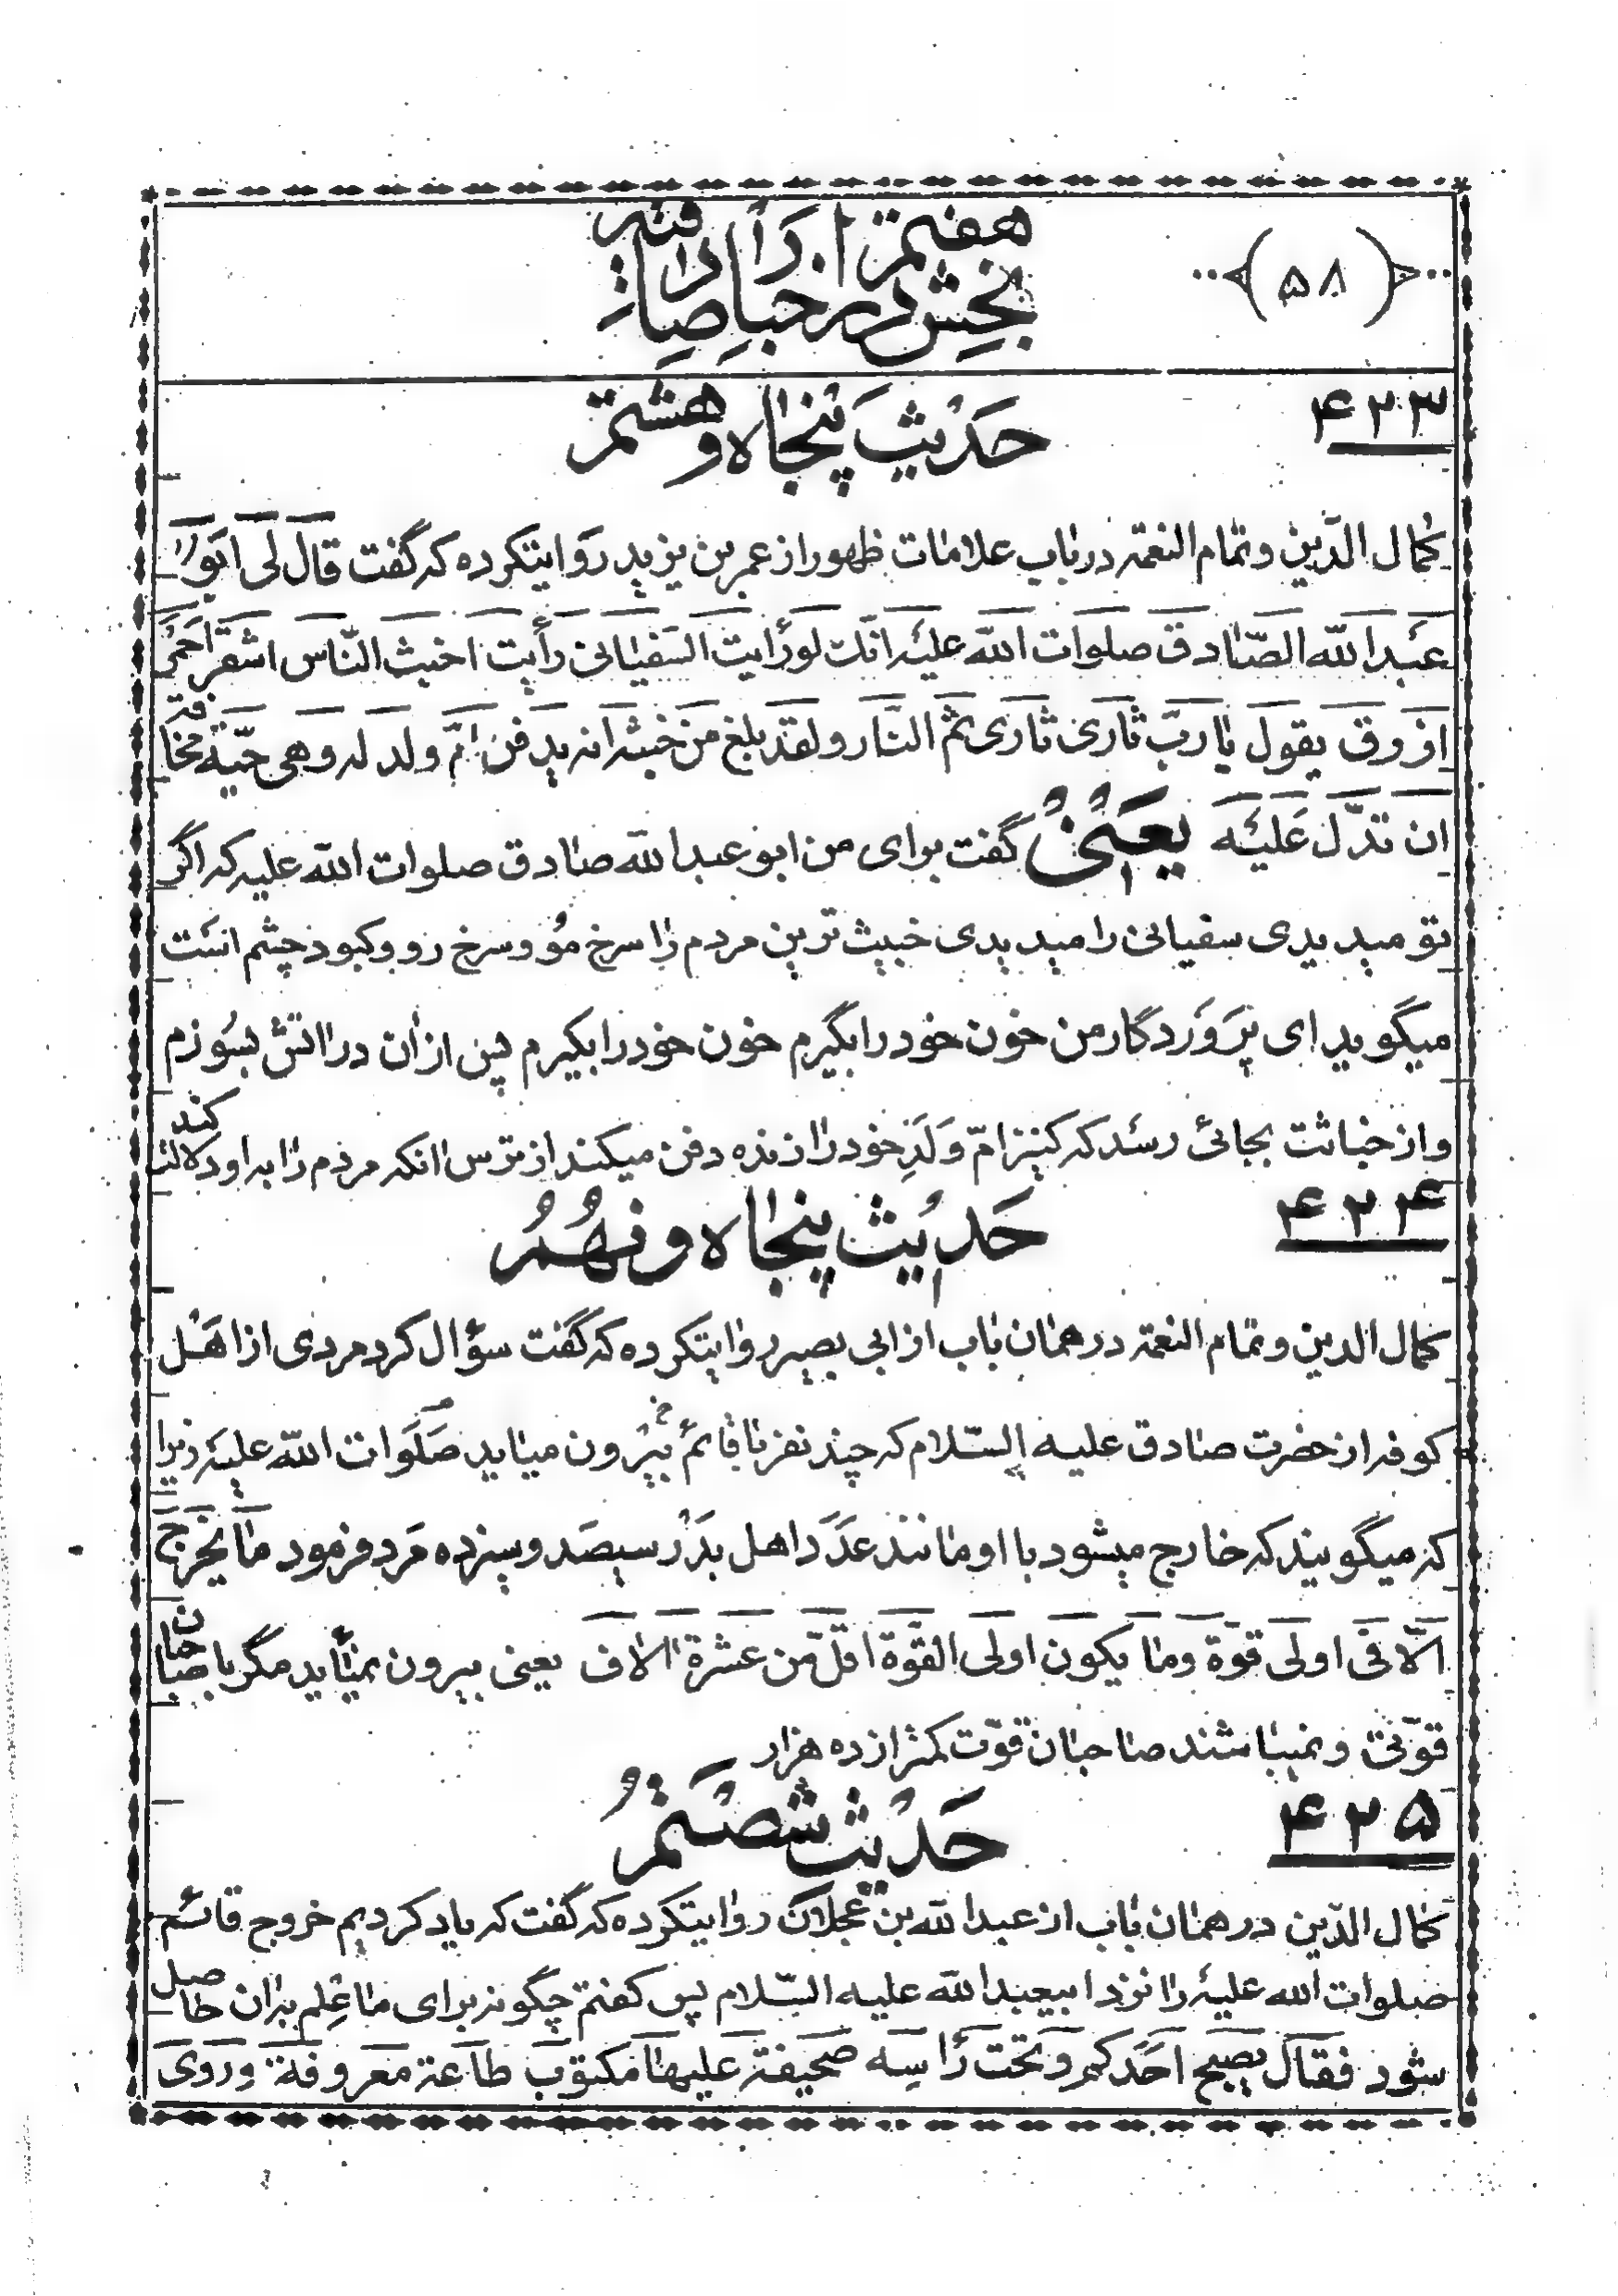 (۵۸)
بخش هفتم در اخبار صادقیه
۴۲۳
حدیث پنجاه و هشتم
کمال الدّین و تمام النعمة در باب علامات ظهور از عمر بن یزید روایتکرده که گفت قال لی ابو
عبد الله الصّادق صلوات الله علیه انّک لو رأیت السفیانی رأیت اخبث النّاس اشقر احمر
ازرق یقول یا ربّ ثاری ثاری ثم النّار و لقد بلغ من خبثه انه یدفن امّ ولد له و هی حیّة مخافة
ان تدلّ علیه یعنی گفت برای من ابو عبد الله صادق صلوات الله علیه که اگر
تو میدیدی سفیانی را میدیدی خبیث ترین مردم را سرخ مو و سرخ رو و کبود چشم است
میگوید ای پروردگار من خون خود را بگیرم خون خود را بگیرم پس از ان در اتش بسوزم
و از خباثت بجائی رسد که کنیز امّ ولد خود را زنده دفن میکند از ترس انکه مردم را به او دلالت کند
۴۲۴
حدیث پنجاه و نهم
کمال الدین و تمام النعمة در همان باب از ابی بصیر روایتکرده که گفت سؤال کرد مردی از اهل
کوفه از حضرت صادق علیه السّلام که چند نفر با قائم بیرون میاید صلوات الله علیه زیرا
که میگویند که خارج میشود با او مانند عدد اهل بدر سیصد و سیزده مرد فرمود ما یخرج
الّا فی اولی قوّة و ما یکون اولی القوّة اقلّ من عشرة الاف یعنی بیرون نمیاید مگر با صاحبان
قوّتی و نمیباشند صاحبان قوّت کمتر از ده هزار
۴۲۵
حدیث شصتم
کمال الدّین در همان باب از عبد الله بن عجلان روایتکرده که گفت که یاد کردیم خروج قائم
صلوات الله علیه را نزد ابیعبد الله علیه السّلام پس گفتم چگونه برای ما علم بان حاصل
شود فقال یصبح احدکم و تحت رأسه صحیفة علیها مکتوب طاعة معروفة و روی